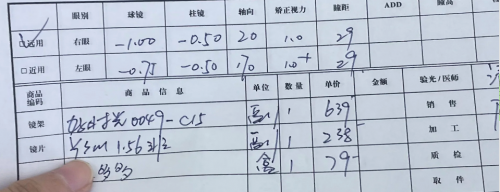 眼别 球镜 柱镜 轴向 矫正视力 瞳距 ADD 瞳高
☑远用 右眼 -1.00 -0.50 20 1.0 29
□近用 左眼 -0.75 -0.50 170 1.0+ 29
商品编码 商品信息 单位 数量 单价 金额 验光/医师
镜架 0049-C15 副 1 639 销售
镜片 1.56 副 1 238 加工
盒 1 79- 质检
取件